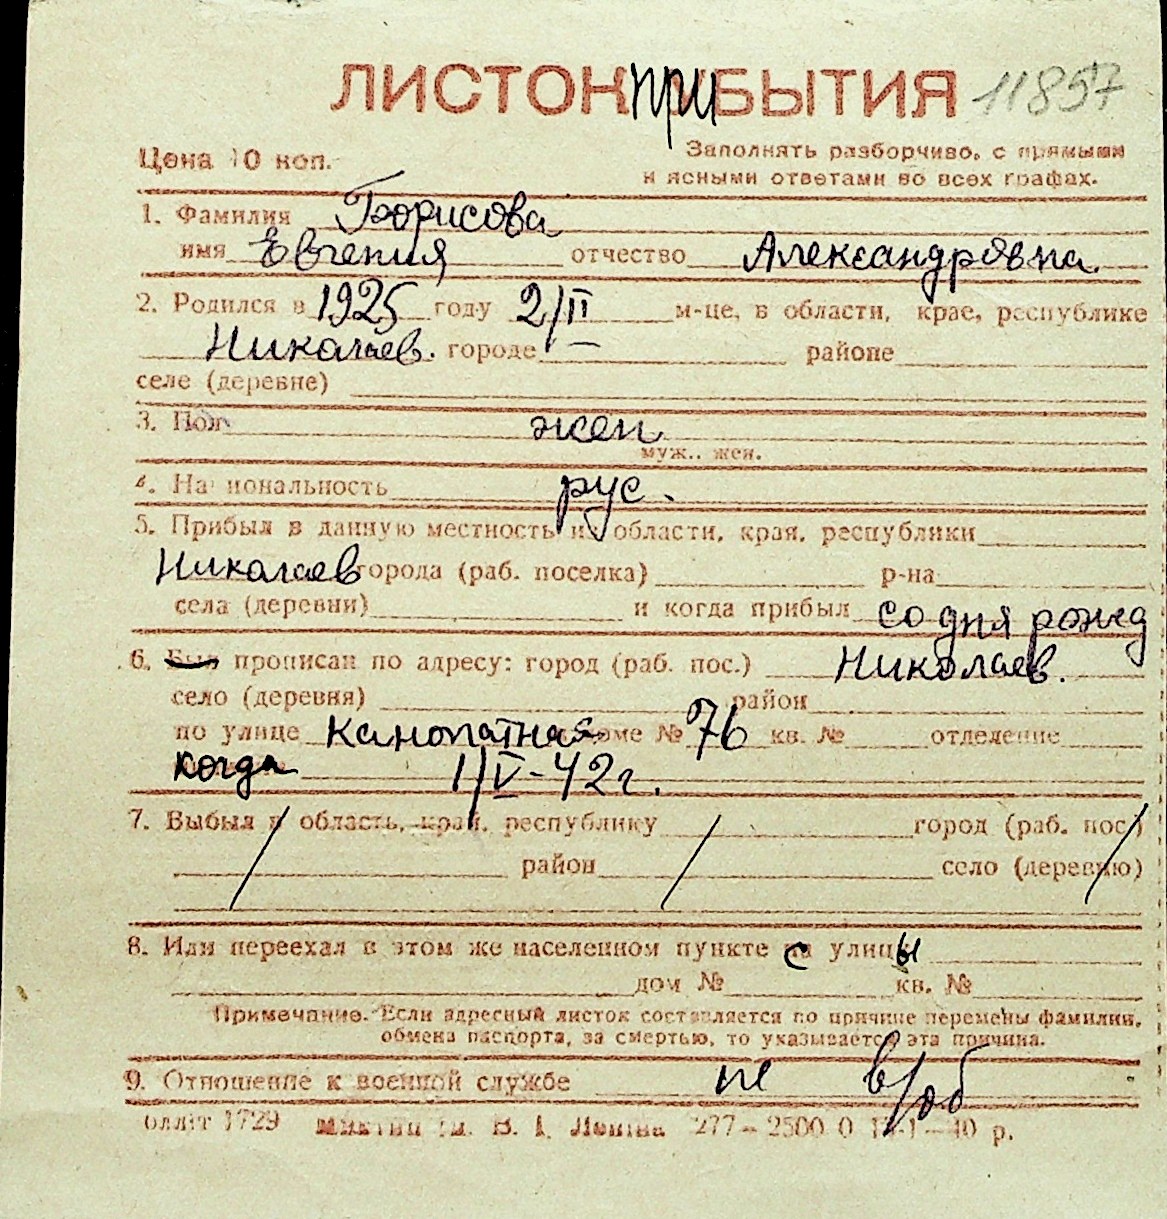 ЛИСТОК ПРИБЫТИЯ 11857
Цена 10 коп.
Заполнять разборчиво, с прямыми
и ясными ответами во всех графах.
1. Фамилия Борисова
имя Евгения отчество Александровна
2. Родился в 1925 году 2/II м-це, в области, крае, республике
Николаев. городе районе
селе (деревне)
3. Пол жен
муж., жен.
4. Национальность рус.
5. Прибыл в данную местность из области, края, республики
Николаев города (раб. поселка) р-на
села (деревни) и когда прибыл со дня рожд
6. Был прописан по адресу: город (раб. пос.) Николаев.
село (деревня) район
по улице Канопатная доме № 76 кв. № отделение
когда 1/V-42 г.
7. Выбыл в область, край, республику город (раб. пос.)
район село (деревню)
8. Или переехал в этом же населенном пункте с улицы
дом № кв. №
Примечание. Если адресный листок составляется по причине перемены фамилии,
обмена паспорта, за смертью, то указывается эта причина.
9. Отношение к военной службе не в/об
1729 В. І. Леніна 277 – 2500 0 – 40 р.